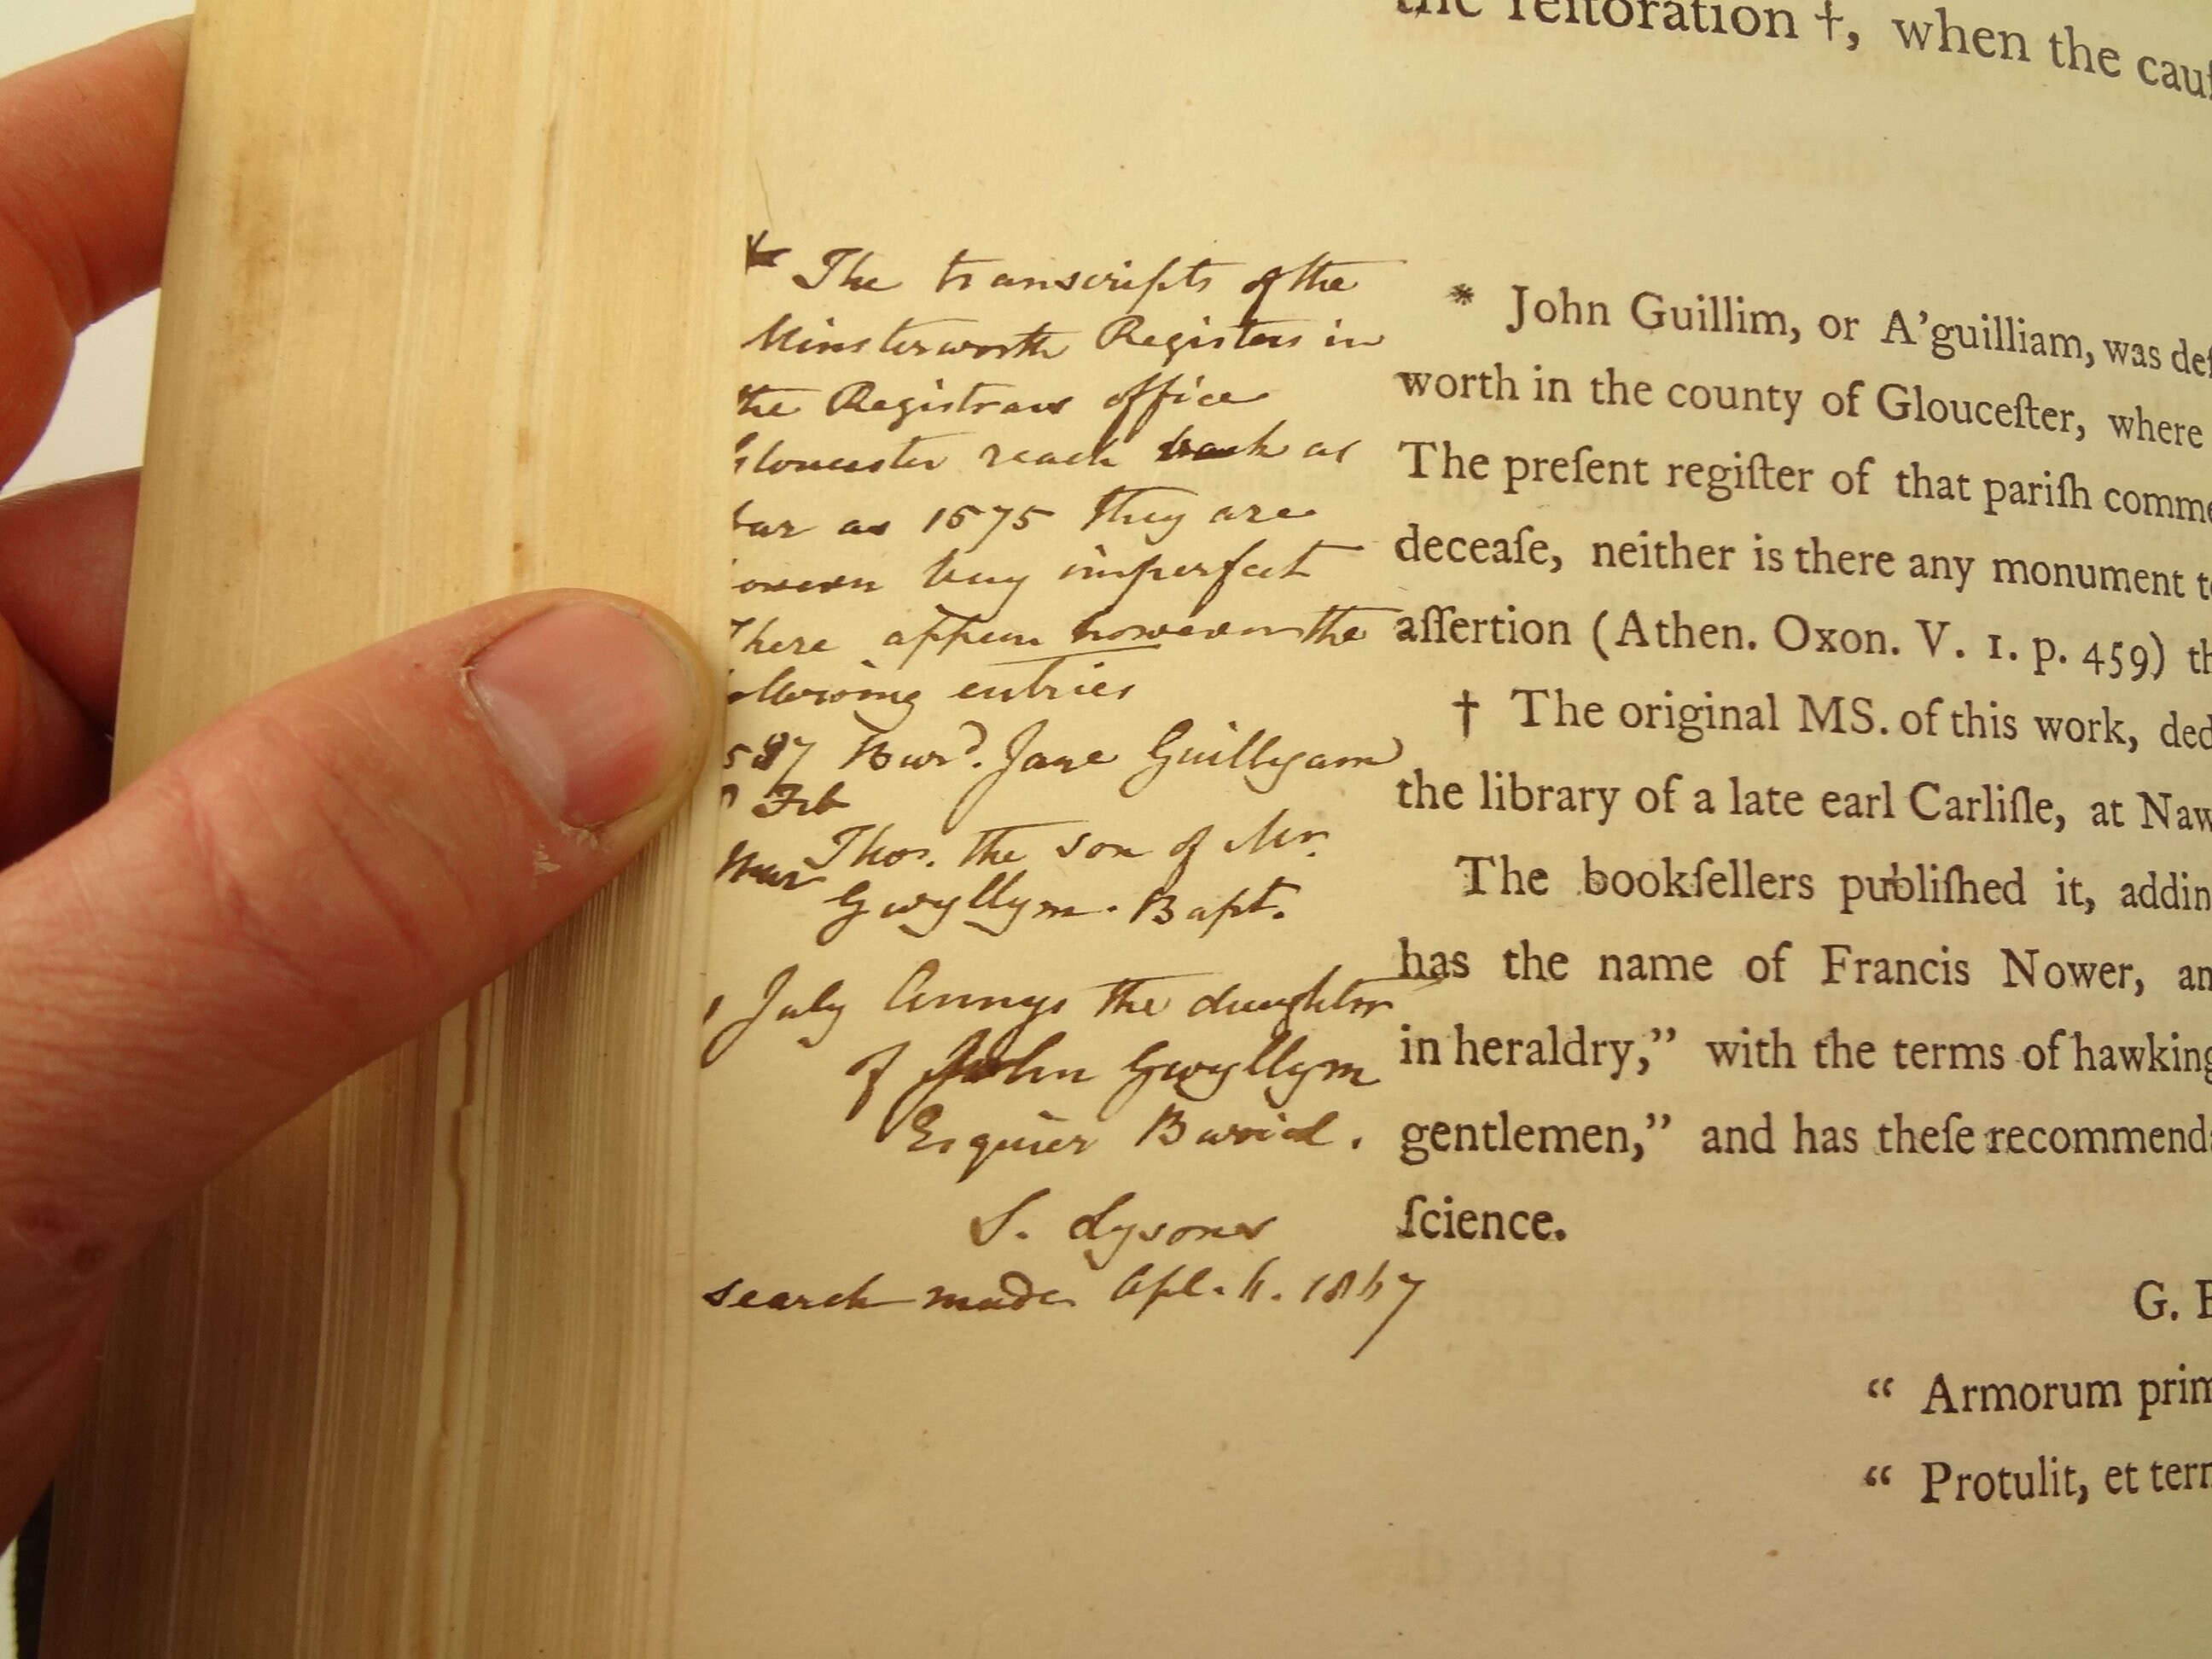 the reſtoration †, when the cauſ
* The transcripts of the
Minsterworth Registers in
the Registrars office
Gloucester reach back as
far as 1575 they are
however very imperfect
There appear however the
following entries
587 Burd. Jane Guillyam
Feb
Mar Thos. the son of Mr.
Gwyllym. Bapt.
July Annys the daughter
of John Gwyllym
Esquier Buried.
S. Lysons
search made Apl.
* John Guillim, or A'guilliam, was deſ
worth in the county of Glouceſter, where
The preſent regiſter of that pariſh comme
deceaſe, neither is there any monument t
aſſertion (Athen. Oxon. V. 1. p. 459) th
† The original MS. of this work, ded
the library of a late earl Carliſle, at Naw
The bookſellers publiſhed it, addin
has the name of Francis Nower, an
in heraldry,” with the terms of hawking
gentlemen,” and has theſe recommend
ſcience.
G.
“ Armorum prim
“ Protulit, et terr